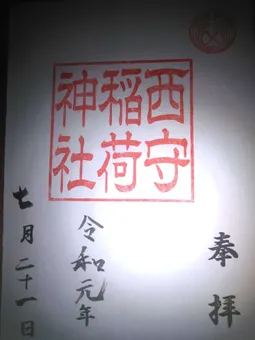 奉拝
西守
稲荷
神社
令和元年
七月二十一日